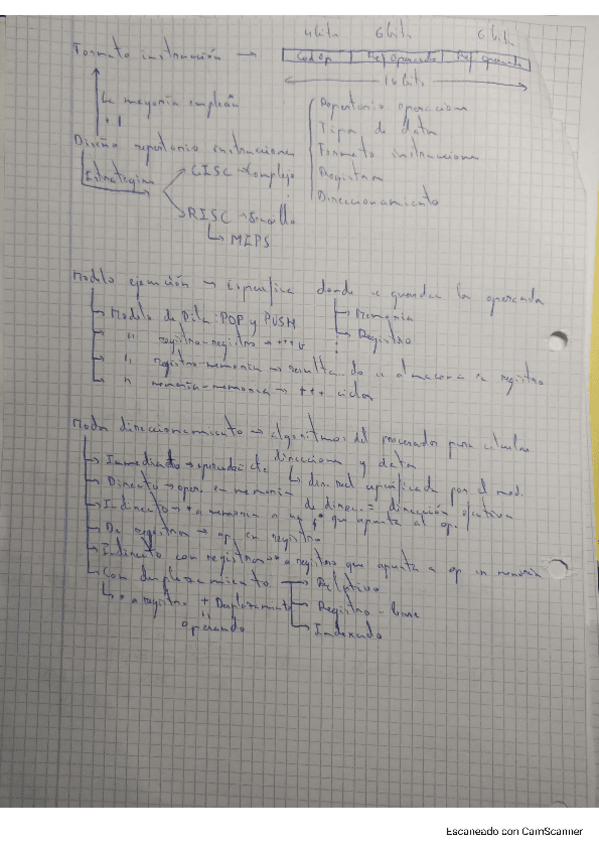 4 bits 6 bits 6 bits
Formato instrucción → Cod Op Ref operando Ref operando
16 bits
La mayoría emplean Repertorio operaciones
+ 1 Tipos de datos
Diseño repertorio instrucciones Formato instrucciones
Estrategias CISC → Complejo Registros
Direccionamiento
RISC → Sencillo
MIPS
Modelo ejecución → Especifica donde se guardan los operandos
Modelo de Pila: POP y PUSH Memoria
" registro-registro → +++ v Registro
" registro-memoria → resultado se almacena en registro
" memoria-memoria → +++ ciclos
Modos direccionamiento → algoritmos del procesador para calcular
direcciones y datos
Inmediato → operando: cte. dir. real especificada por el mod.
Directo → oper. en memoria de direcc. = dirección efectiva
Indirecto → * a memoria que apunta al op.
De registros → op en registro
Indirecto con registros → * a registro que apunta a op en memoria
Con desplazamiento Relativo
* a registro + Desplazamiento Registro-base
operando Indexado
Escaneado con CamScanner